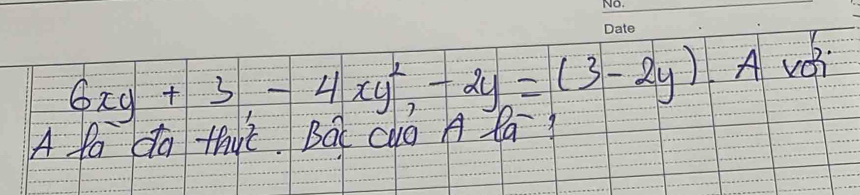 No.
Date
6xy + 3 - 4xy² - 2y = (3 - 2y). A với
A là đa thức. Bậc của A là?